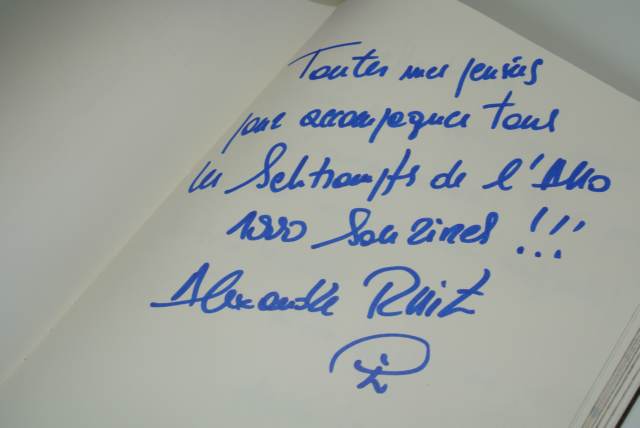 Toutes mes pensées
pour accompagner tous
les Schtroumpfs de l'
1000 Sourires !!!
Alexandra Ruiz